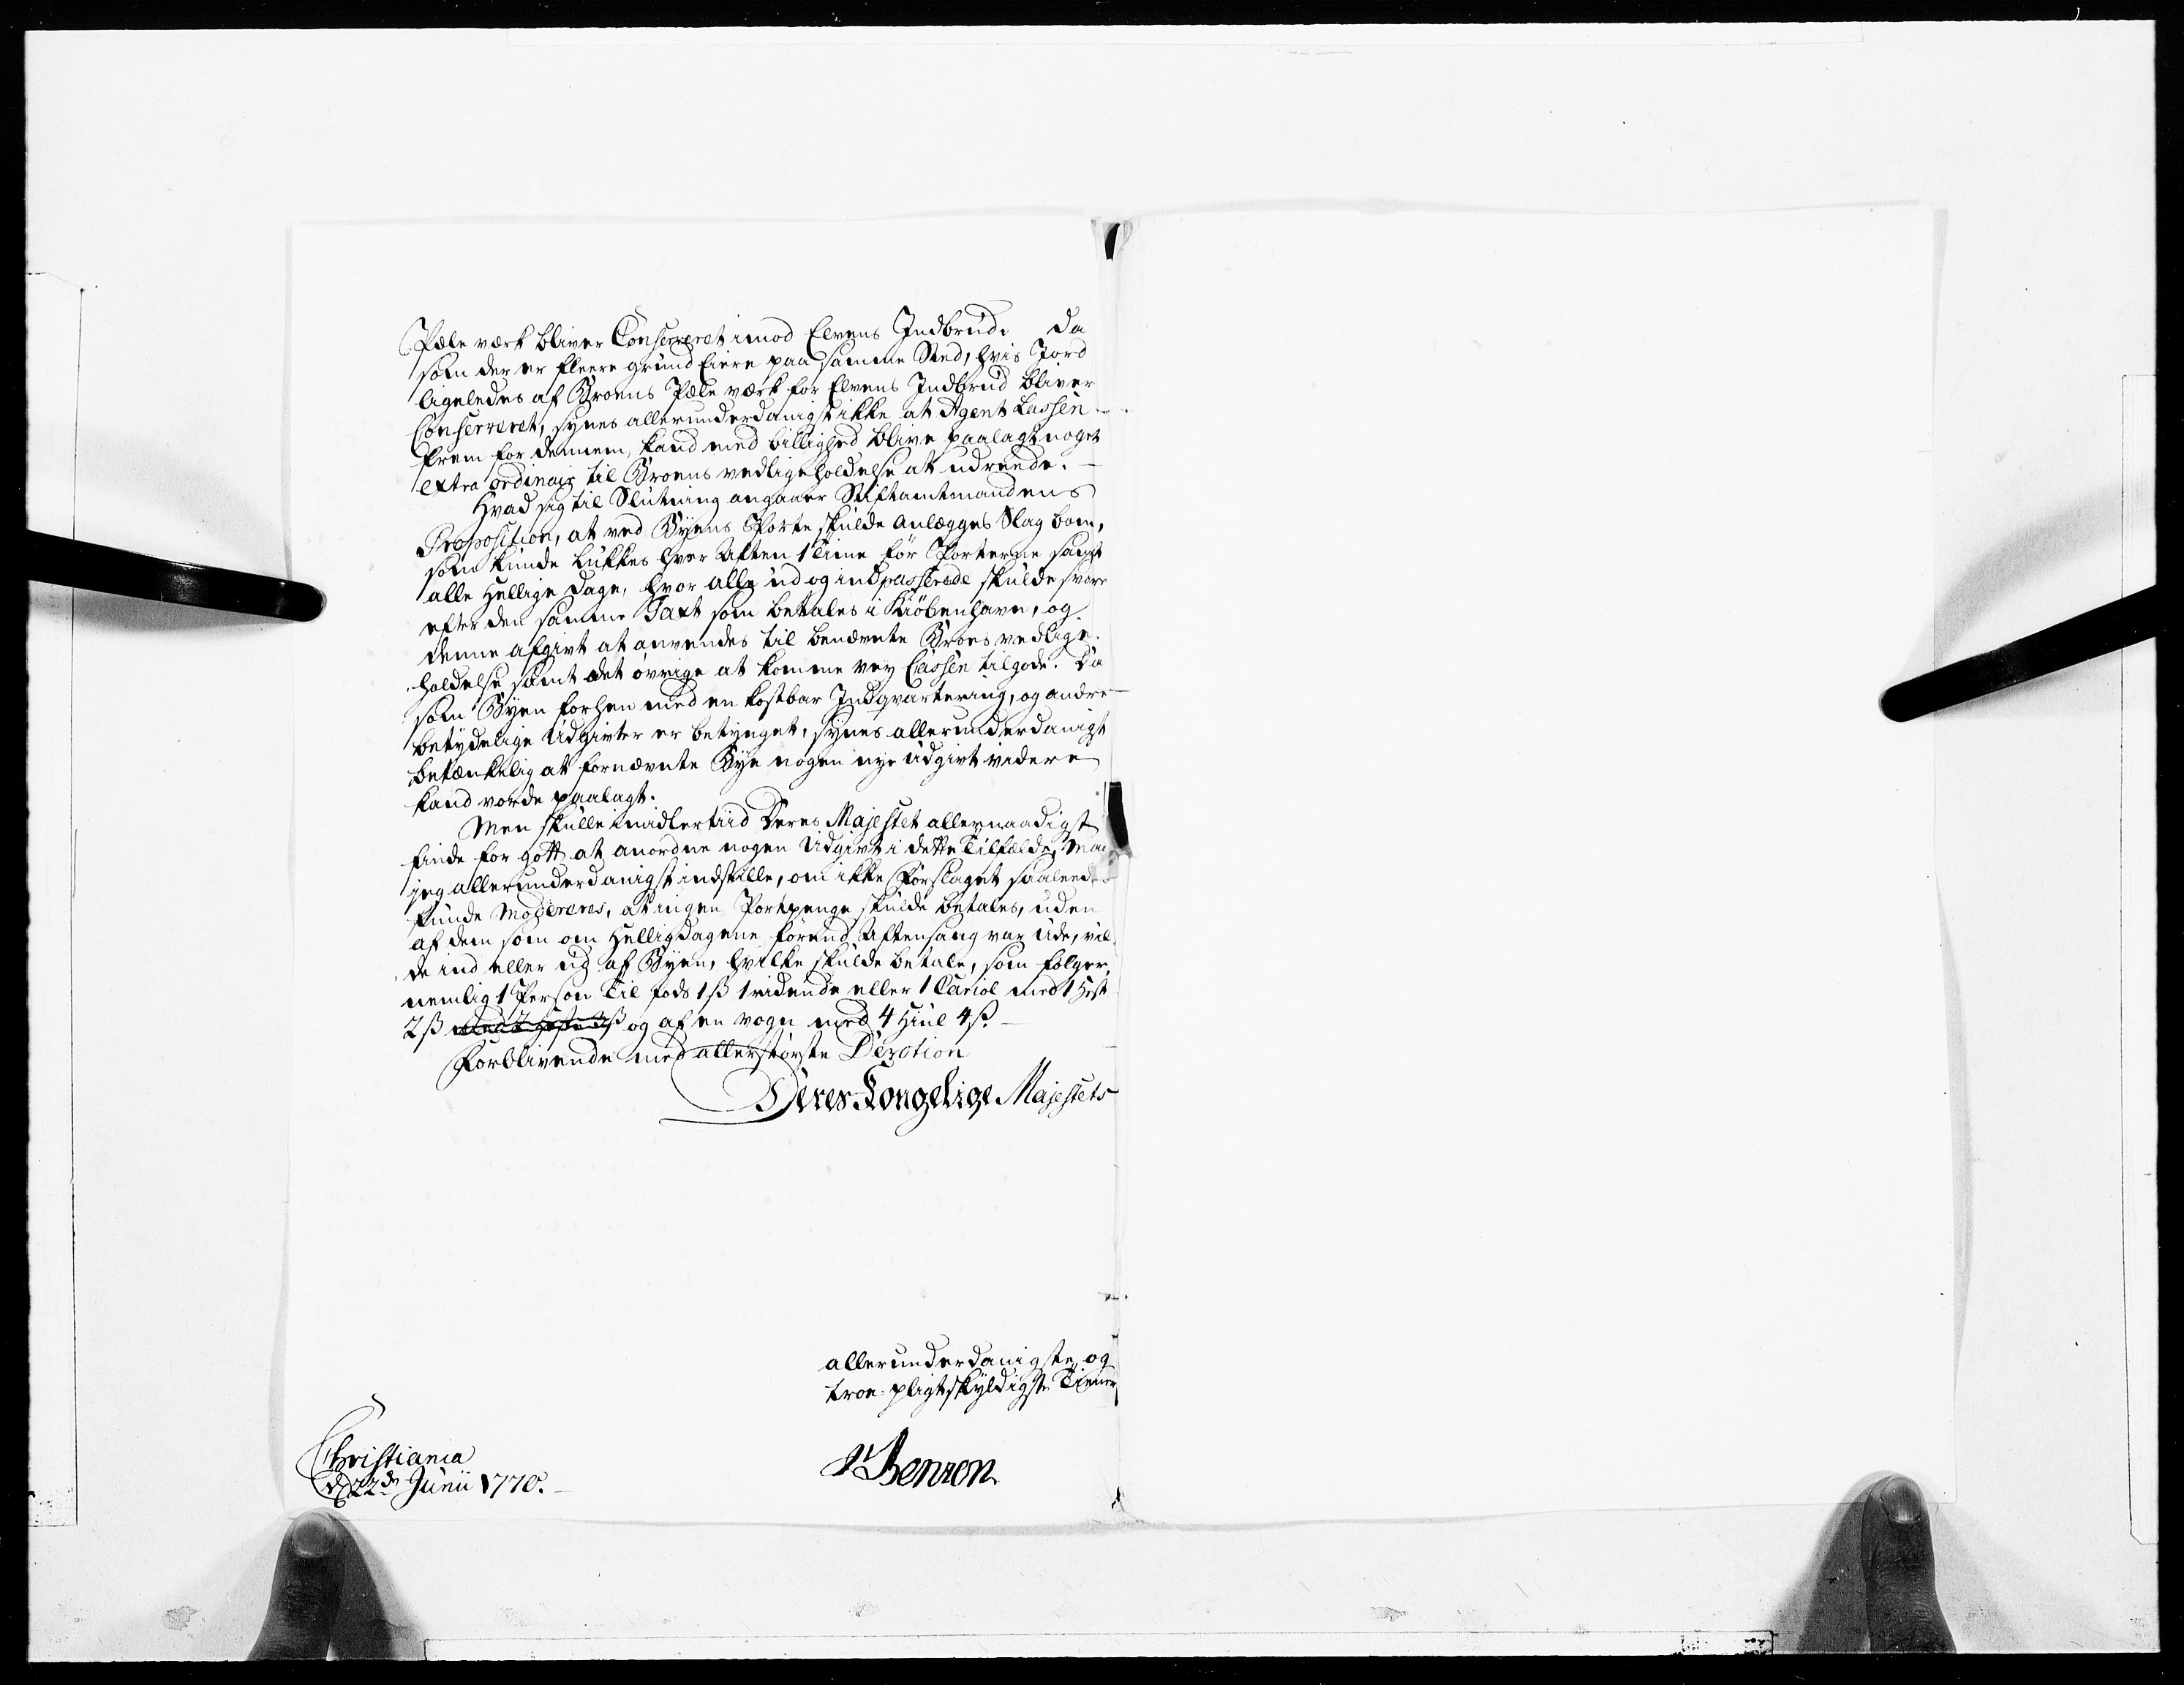 Pæle værk bliver Conserveret imod Elvens Indbrud. Da
som der er fleere grund Eiere paa samme Sted, hvis Jord
ligeledes af Broens Pæle værk for Elvens Indbrud bliver
Conserveret, synes allerunderdanigst ikke at Agent Lassen
frem for dennem, kand med billighed blive paalagt noget
extra ordinair til Broens vedligeholdelse at udreede.
Hvad sig til Slutning angaaer Stiftamtmandens
Proposition, at ved Byens Porte skulde anlægges Slag bom,
som kunde lukkes hver Aften 1 Time før Porterne samt
alle Hellige Dage, hvor alle ud og ind passerede skulde svare
efter den samme Taxt som betales i Kiøbenhavn, og
denne afgivt at anvendes til benævnte Broes vedlige-
holdelse samt det øvrige at komme vey Cassen tilgode. Da
som Byen forhen med en kostbar Indqvartering, og andre
betydelige Udgivter er betynget, synes allerunderdanigst
betænkelig at fornævnte Bye nogen nye udgivt videre
kand vorde paalagt.
Men skulle imidlertiid Deres Majestet allernaadigst
finde for gott at anordne nogen Udgivt i dette Tilfælde, maa
jeg allerunderdanigst indstille, om ikke Forslaget saaleedes
kunde modereres, at ingen Portpenge skulde betales, uden
af dem som om Helligdagene førend Aftensang var ude, vil-
de ind eller ud af Byen, hvilke skulde betale, som følger,
nemlig 1 Person til fods 1 ß 1 ridende eller 1 Cariol med 1 Hest
2 ß og af en vogn med 4 Hiul 4 ß.
Forblivende med allerstørste Devotion
Deres Kongelige Majestets
allerunderdanigste og
troe pligtskyldigste Tiener
Benzon
Christiania
d 22de Junii 1770.